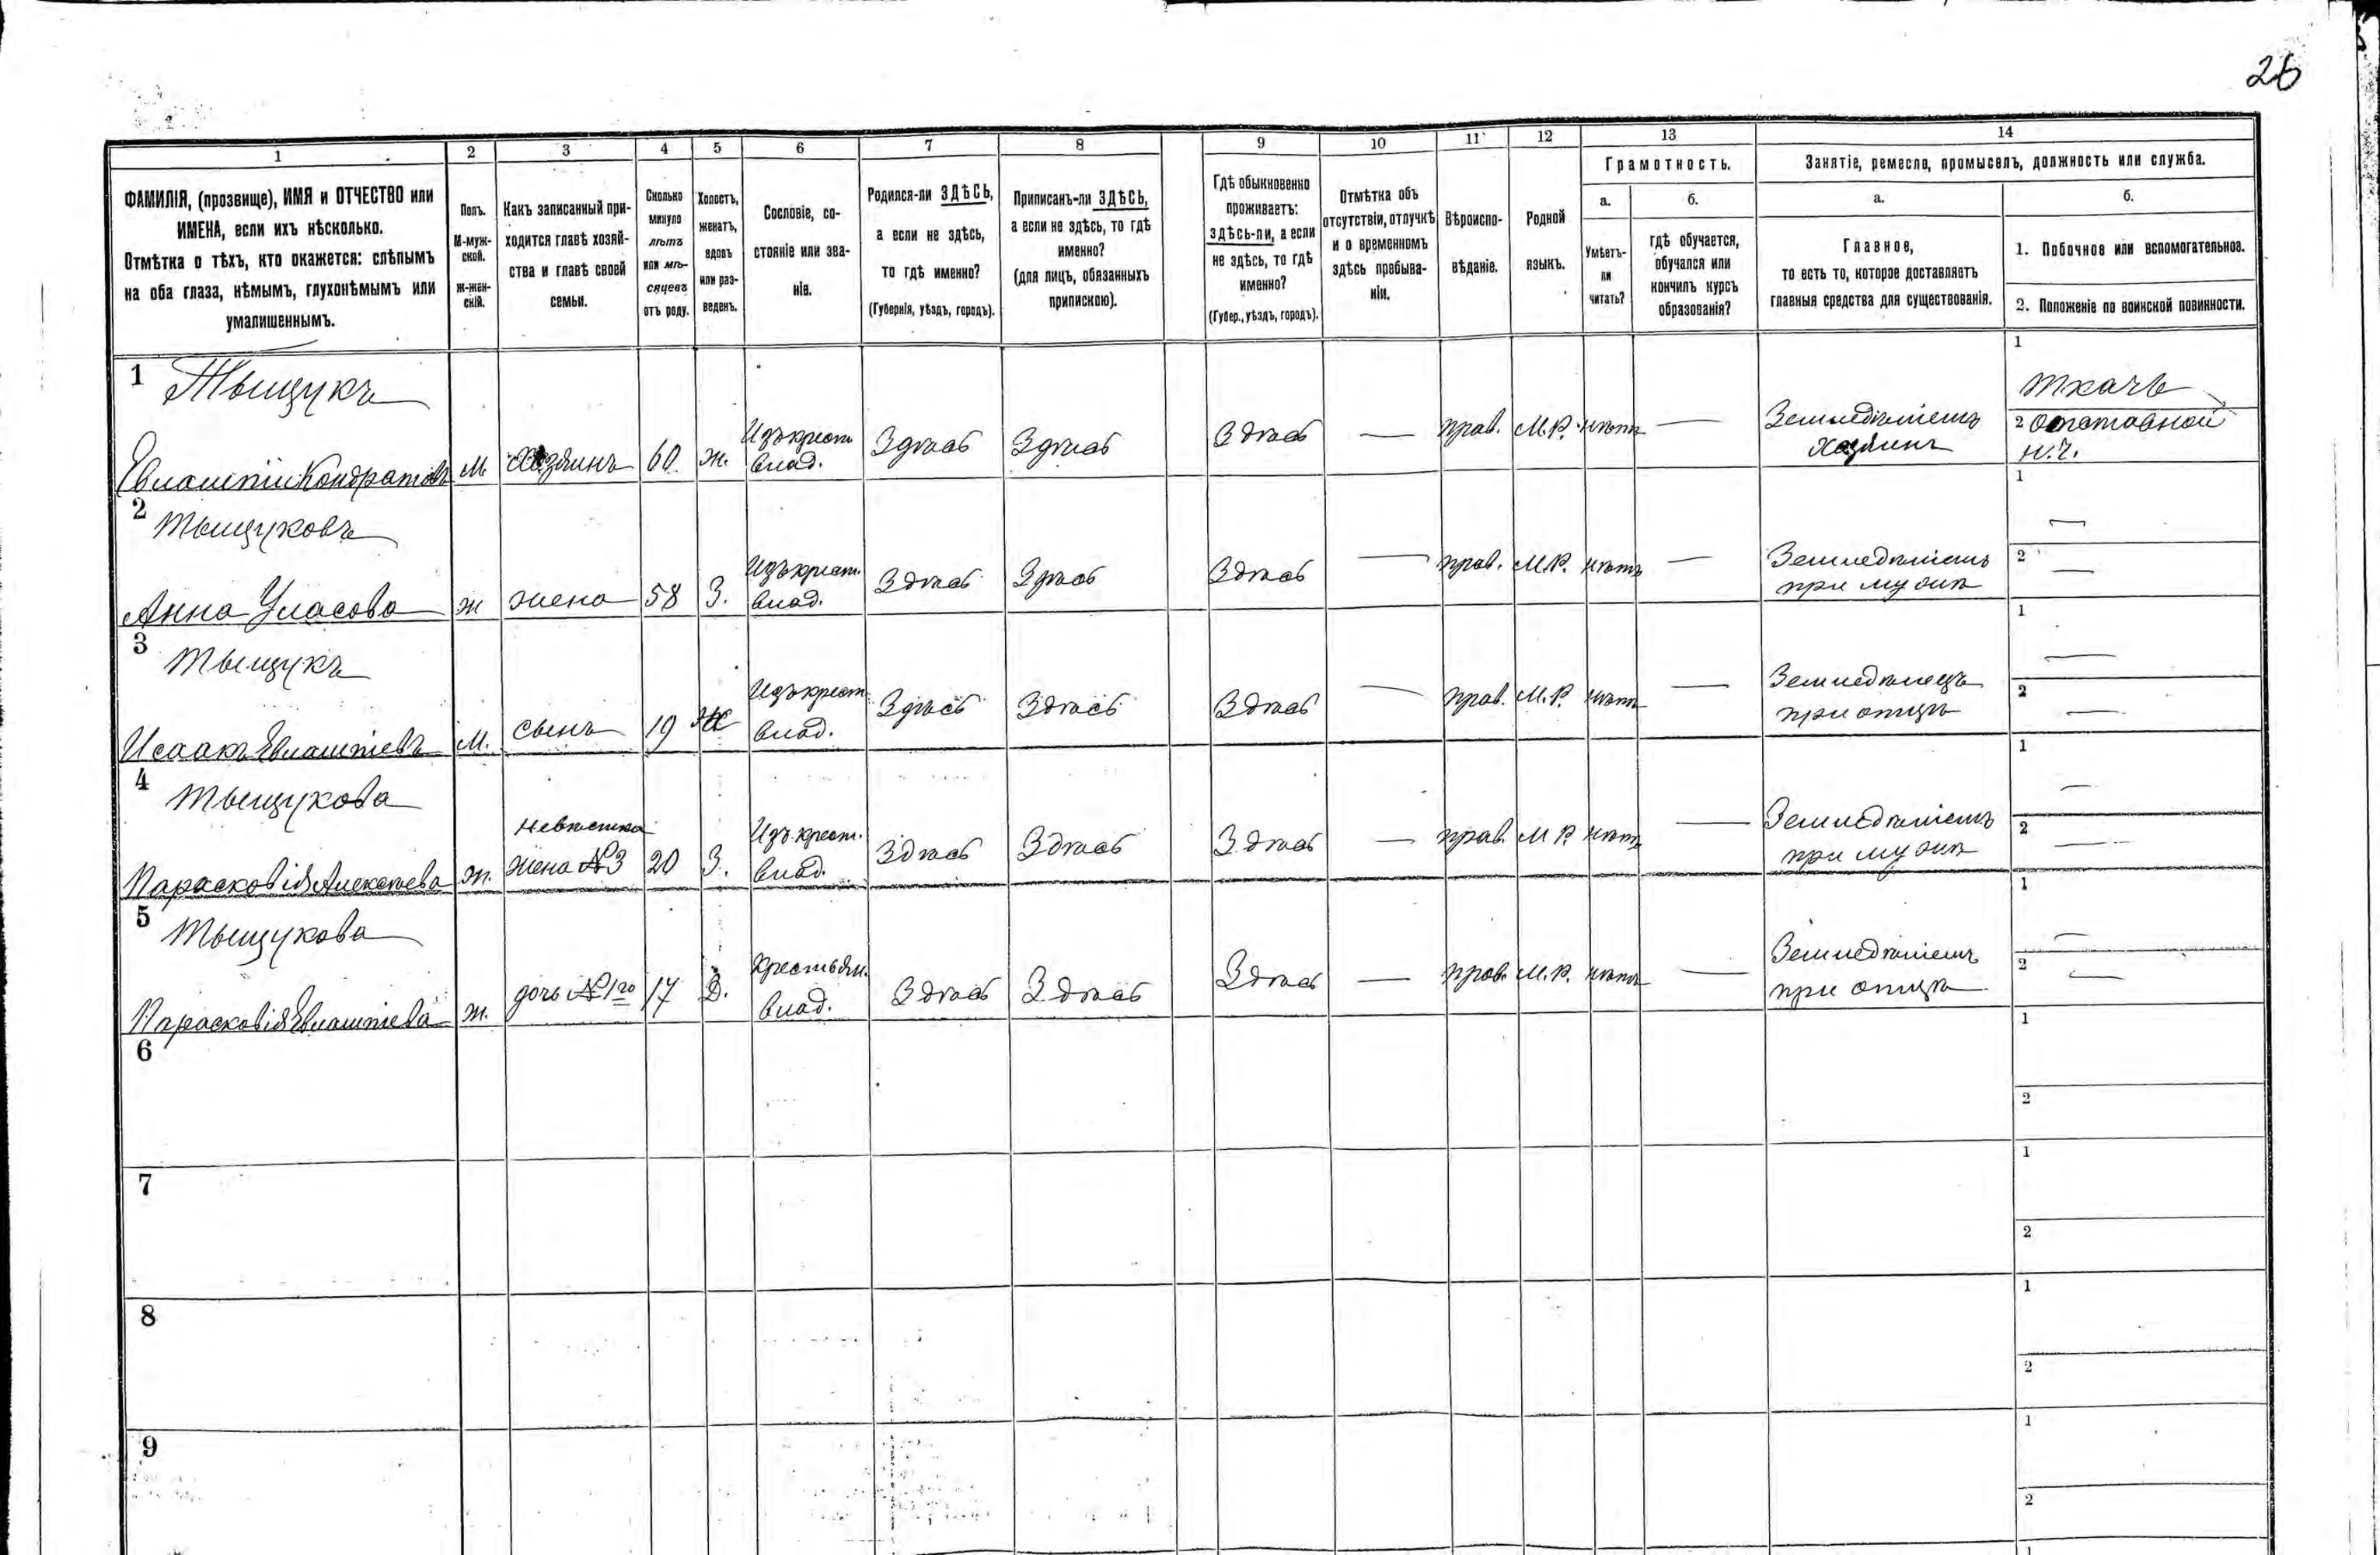 26
1 2 3 4 5 6 7 8 9 10 11 12 13 14
ФАМИЛІЯ, (прозвище), ИМЯ и ОТЧЕСТВО или
ИМЕНА, если ихъ нѣсколько.
Отмѣтка о тѣхъ, кто окажется: слѣпымъ
на оба глаза, нѣмымъ, глухонѣмымъ или
умалишеннымъ.
Полъ.
М-муж-
ской.
Ж-жен-
скій.
Какъ записанный при-
ходится главѣ хозяй-
ства и главѣ своей
семьи.
Сколько
минуло
лѣтъ
или мѣ-
сяцевъ
отъ роду.
Холостъ,
женатъ,
вдовъ
или раз-
веденъ.
Сословіе, со-
стояніе или зва-
ніе.
Родился-ли ЗДѢСЬ,
а если не здѣсь,
то гдѣ именно?
(Губернія, уѣздъ, городъ).
Приписанъ-ли ЗДѢСЬ,
а если не здѣсь, то гдѣ
именно?
(для лицъ, обязанныхъ
припискою).
Гдѣ обыкновенно
проживаетъ:
здѣсь-ли, а если
не здѣсь, то гдѣ
именно?
(Губер., уѣздъ, городъ).
Отмѣтка объ
отсутствіи, отлучкѣ
и о временномъ
здѣсь пребыва-
ніи.
Вѣроиспо-
вѣданіе.
Родной
языкъ.
Грамотность.
а.
Умѣетъ-
ли
читать?
б.
гдѣ обучается,
обучался или
кончилъ курсъ
образованія?
Занятіе, ремесло, промыселъ, должность или служба.
а.
Главное,
то есть то, которое доставляетъ
главныя средства для существованія.
б.
1. Побочное или вспомогательное.
2. Положеніе по воинской повинности.
1 Тыщукъ
Евлампій Кондратовъ М. Хозяинъ 60 ж. Изъ крест. влад. Здѣсь Здѣсь Здѣсь — прав. М.Р. нѣтъ — Земледѣліемъ хозяинъ
1 Ткачъ
2 Отставной
н.ч.
2 Тыщуковъ
Анна Уласова ж жена 58 З. Изъ крест. влад. Здѣсь Здѣсь Здѣсь — прав. М.Р. нѣтъ — Земледѣліемъ при мужѣ
1 —
2 —
3 Тыщукъ
Исаакъ Евлампіевъ М. сынъ 19 Ж Изъ крест. влад. Здѣсь Здѣсь Здѣсь — прав. М.Р. нѣтъ — Земледѣлецъ при отцѣ
1 —
2 —
4 Тыщукова
Парасковія Алексѣева ж. невѣстка жена №3 20 З. Изъ крест. влад. Здѣсь Здѣсь Здѣсь — прав. М Р. нѣтъ — Земледѣліемъ при мужѣ
1 —
2 —
5 Тыщукова
Парасковія Евлампіева ж. дочь №1го 17 Д. Крестьян. влад. Здѣсь Здѣсь Здѣсь — прав. М.Р. нѣтъ — Земледѣліемъ при отцѣ
1 —
2 —
6
1
2
7
1
2
8
1
2
9
1
2
1